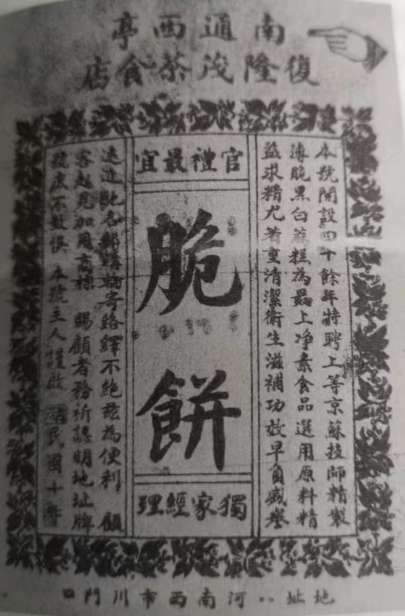 南通西亭
復隆茂茶食店
官禮最宜
本號開設四十餘年特聘上等京蘇技師精製
薄脆黑白蔴糕為最上净素食品選用原料精
益求精尤著重清潔衛生滋補功效早負盛譽
脆餅
遠近馳名郵購轉寄絡繹不絕茲為便利顧
客起見加用商標賜顧者務祈認明地址牌
號庶不致悞本號主人謹啟民國十
獨家經理
地址河南西市川門口